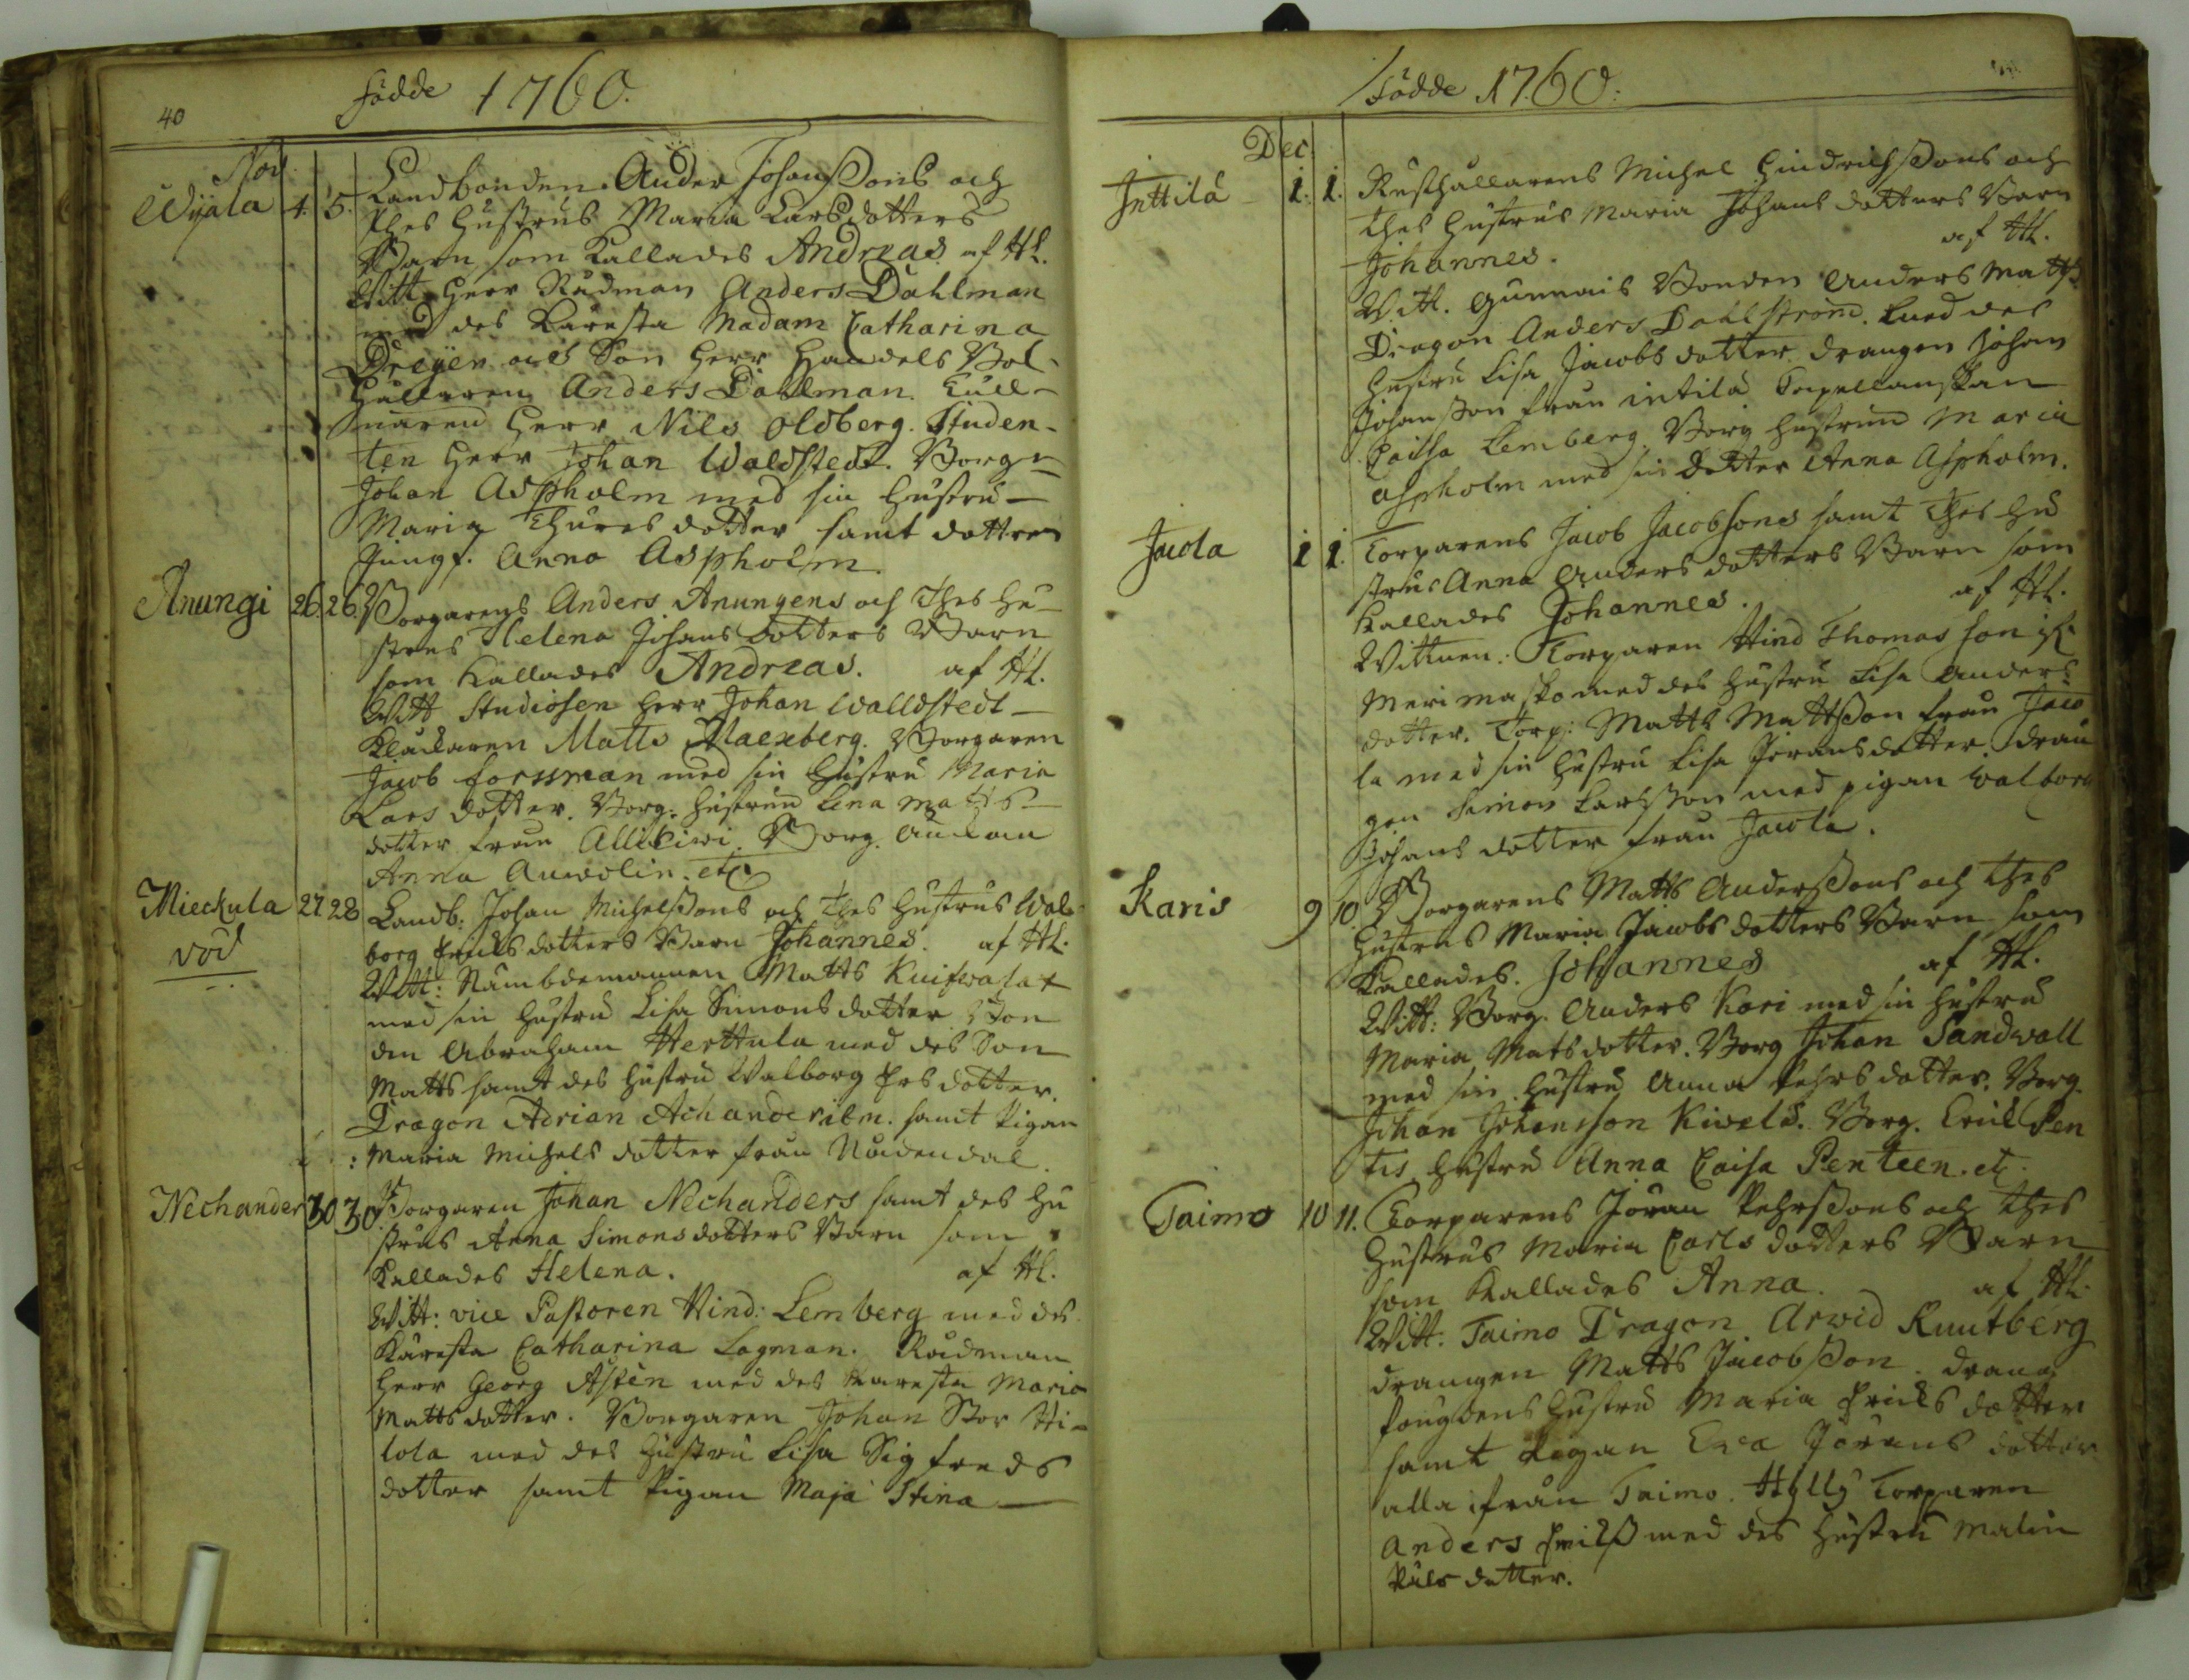 40
Födde 1760.
Nov.
Wijala 4. 5. Landbonden Ander Johanßons och
thes hustrus Maria Larsdotters
Barn som kallades Andreas. af HL.
Witt. Herr Rådman Anders Dahlman
med des Käresta Madam Catharina
Dreijer och Son Herr Handels Bok-
hållaren Anders Dahlman. Tull-
Snaren Herr Nils Oldberg. Studen-
ten Herr Johan Waldstedt. Borg:
Johan Aspholm med sin hustru
Maria Thures dotter samt dottren
Jungf. Anna Aspholm.
Anungi 26. 26. Borgarens Anders Anungens och Thes Hu-
strus Helena Johans dotters Barn
som kallades Andreas. af HL.
Witt Studiosen Herr Johan Walldstedt
Klåckaren Matts Maexberg. Borgaren
Jacob Forssman med sin Hustru Maria
Lars dotter. Borg: hustrun Lena Matts
dotter från Alliskiwi. Borg. Änkan
Anna Auwolin. etc
Mieckula 27 28 Landb: Johan Michelßons och Thes hustrus Wal-
vod
borg Ericks dotters Barn Johannes. af HL.
Witt: Nämbdemannen Matts Kuifwalat
med sin hustru Lisa Simons dotter Bon
den Abraham Herttula med des Son
Matts samt des hustru Walborg Ers dotter.
Dragon Adrian Achander ibm. samt Pigan
Maria Michels dotter från Nådendal.
Nechander 30 30 Borgaren Johan Nechanders samt des Hu
strus Anna Simonsdotters Barn som
kallades Helena. af HL.
Witt: vice Pastoren Hind: Lemberg med des
Käresta Catharina Lagman. Rådman
Herr Georg Asten med des Käresta Maria
Mattsdotter. Borgaren Johan Stor Hi-
lola med des Hustru Lisa Sigfreds
dotter samt Pigan Maja Stina
Födde 1760.
Dec.
Inttila 1. 1. Rusthållarens Michel Hindrichßons och
thes hustrus Maria Johans dotters Barn
Johannes. af HL.
Witt. Gunnais Bonden Anders Matts
Dragon Anders Dahlström. med des
hustru Lisa Jacobs dotter drängen Johan
Johanßon från intila Capellanskan
Caisa Lemberg. Borg hustrun Maria
Aspholm med sin dotter Anna Aspholm.
Jacola 1 1. Torparens Jacob Jacobsons samt thes hu
strus Anna Anders dotters Barn som
kallades Johannes. af HL.
Wittnen: Torparen Hind Thomas son
Merimasko med des hustru Lisa Anders
dotter. Torp: Matts Mattßon från Jaco
la med sin hustru Lisa Jöransdotter drän
gen Simon Larsson med pigan Walborg
Johans dotter från Jacola.
Karis 9 10. Borgarens Matts Anderßons och thes
hustrus Maria Jacobs dotters Barn som
kallades. Johannes af HL.
Witt: Borg. Anders Kari med sin hustru
Maria Matsdotter. Borg Johan Sandwall
med sin hustru Anna Pehrs dotter. Borg.
Johan Johansson Kiwelä. Borg. Erick Pen
tis hustru Anna Caisa Penteen. etc.
Taimo 10 11. Torparens Jöran Pehrßons och thes
hustrus Maria Carls dotters Barn
som kallades Anna. af HL.
Witt: Taimo Dragon Arwid Ruutberg
drängen Matts Jacobßon. drang
fougdens hustru Maria Ericks dotter
samt Pigan Ewa Jörans dotter
alla ifrån Taimo. Hylly Torparen
Anders Erikß med des hustru Malin
Påls dotter.